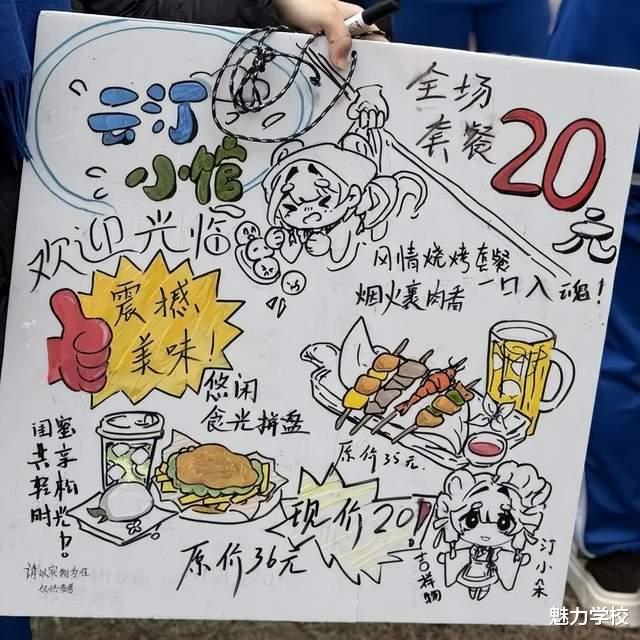 云汀
小馆
欢迎光临
全场
套餐
20元
风情烧烤套餐
烟火裹肉香一口入魂！
震撼
美味！
悠闲
食光拼盘
闺蜜
共享
轻松
时光！
原价35元.
原价36元
现价20！
吉祥物
汀小朵
请以实物为准
魅力学校